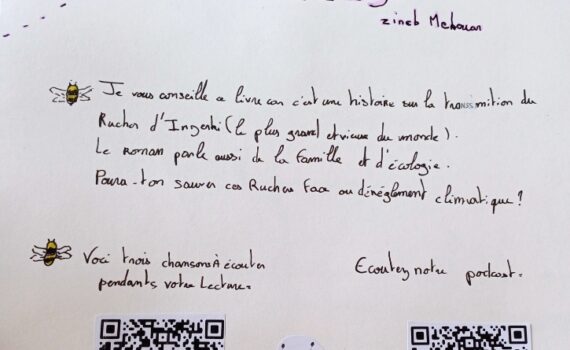 zineb Mekouar
Je vous conseille ce livre car c'est une histoire sur la transmition du
Rucher d'Inzerki (le plus grand et vieux du monde).
Le roman parle aussi de la famille et d'écologie.
Poura-t-on sauver ces Ruches Face au déréglement climatique?
Voci trois chansons À écouter
pendants votre Lecture.
Ecoutez notre podcast.